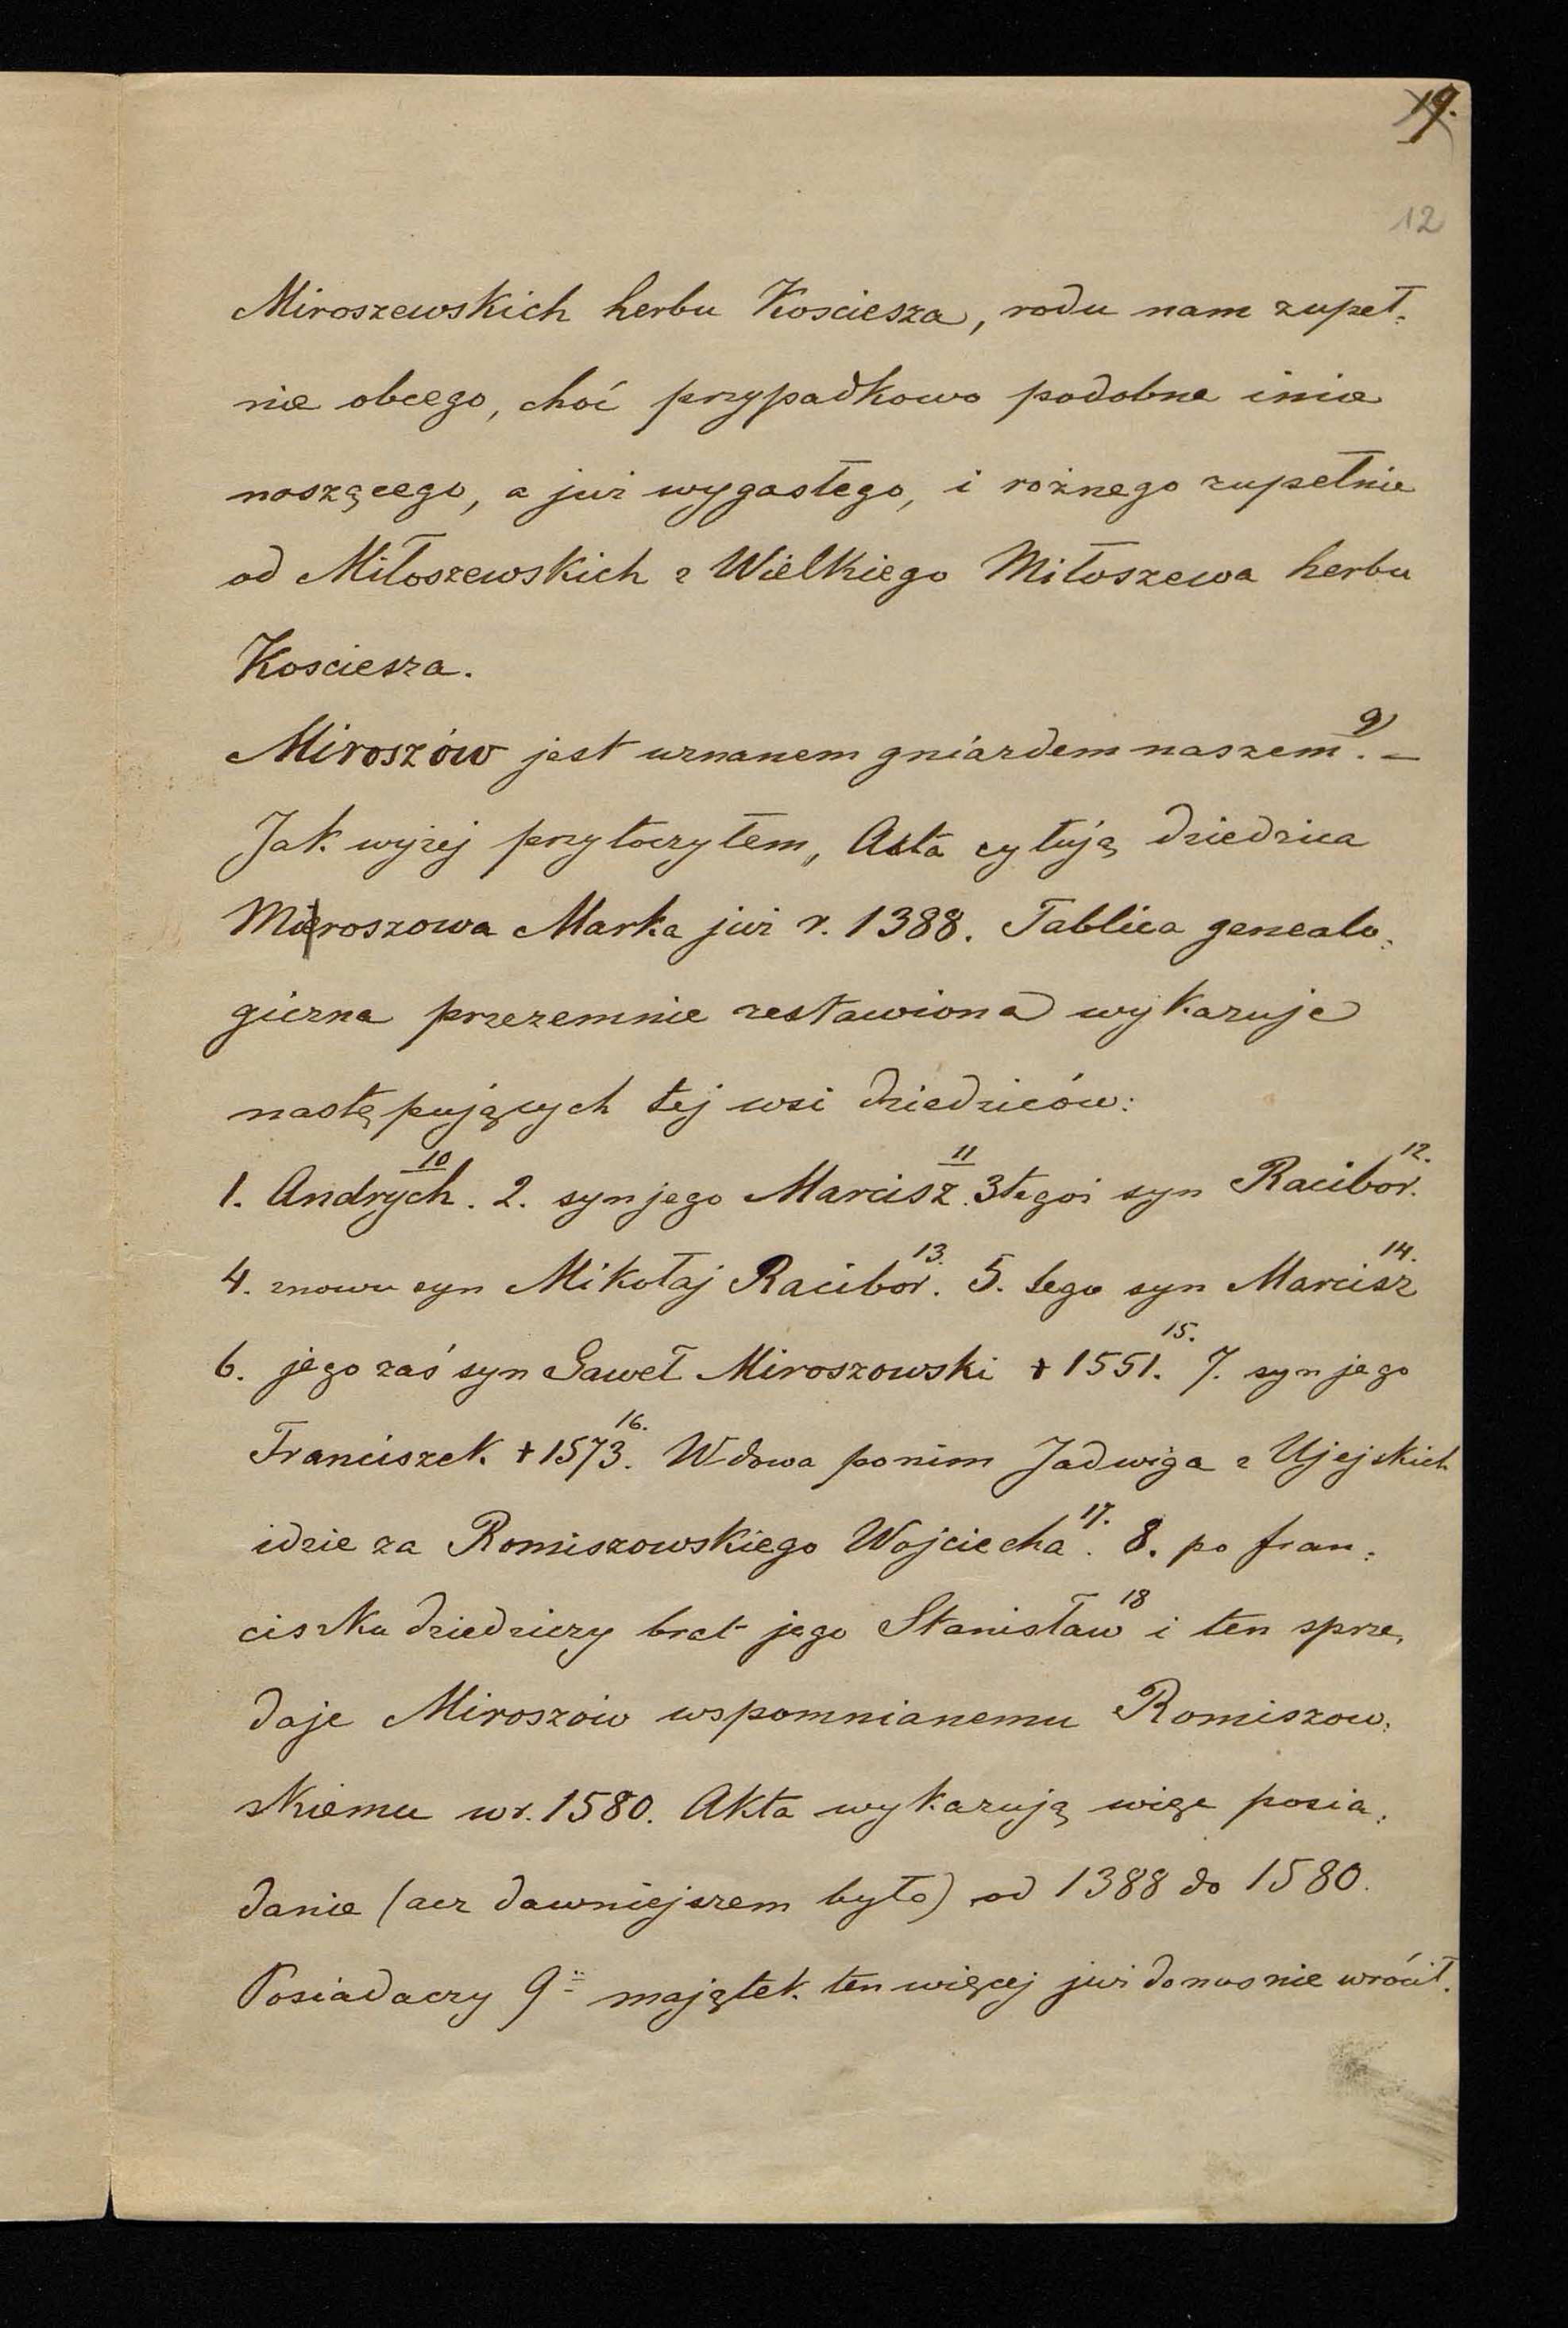 19.
12
Miroszewskich herbu Kosciesza, rodu nam zupeł:
nie obcego, choć przypadkowo podobne imie
noszącego, a już wygasłego, i rożnego zupełnie
od Miłoszewskich z Wielkiego Miłoszewa herbu
Kosciesza.
Miroszów jest uznanem gniazdem naszem 9). –
Jak wyżej przytoczyłem, Akta cytują dziedzica
Miroszowa Marka już r. 1388. Tablica genealo:
giczna przezemnie zestawiona wykazuje
następujących tej wsi dziedziców:
1. Andrych 10. 2. syn jego Marcisz 11. 3 tegoż syn Racibor 12.
4. znowu syn Mikołaj Racibor 13. 5. tego syn Marcisz 14.
6. jego zaś syn Gaweł Miroszowski + 1551. 15. 7. syn jego
Franciszek + 1573. 16. Wdowa po nim Jadwiga z Ujejskich
idzie za Romiszowskiego Wojciecha 17. 8. po fran:
ciszku dziedziczy brat jego Stanisław 18 i ten sprze,
daje Miroszów wspomnianemu Romiszow:
skiemu w r. 1580. Akta wykazują więc posia:
danie (acz dawniejszem było) od 1388 do 1580.
Posiadaczy 9 majątek ten więcej już do nas nie wrócił.